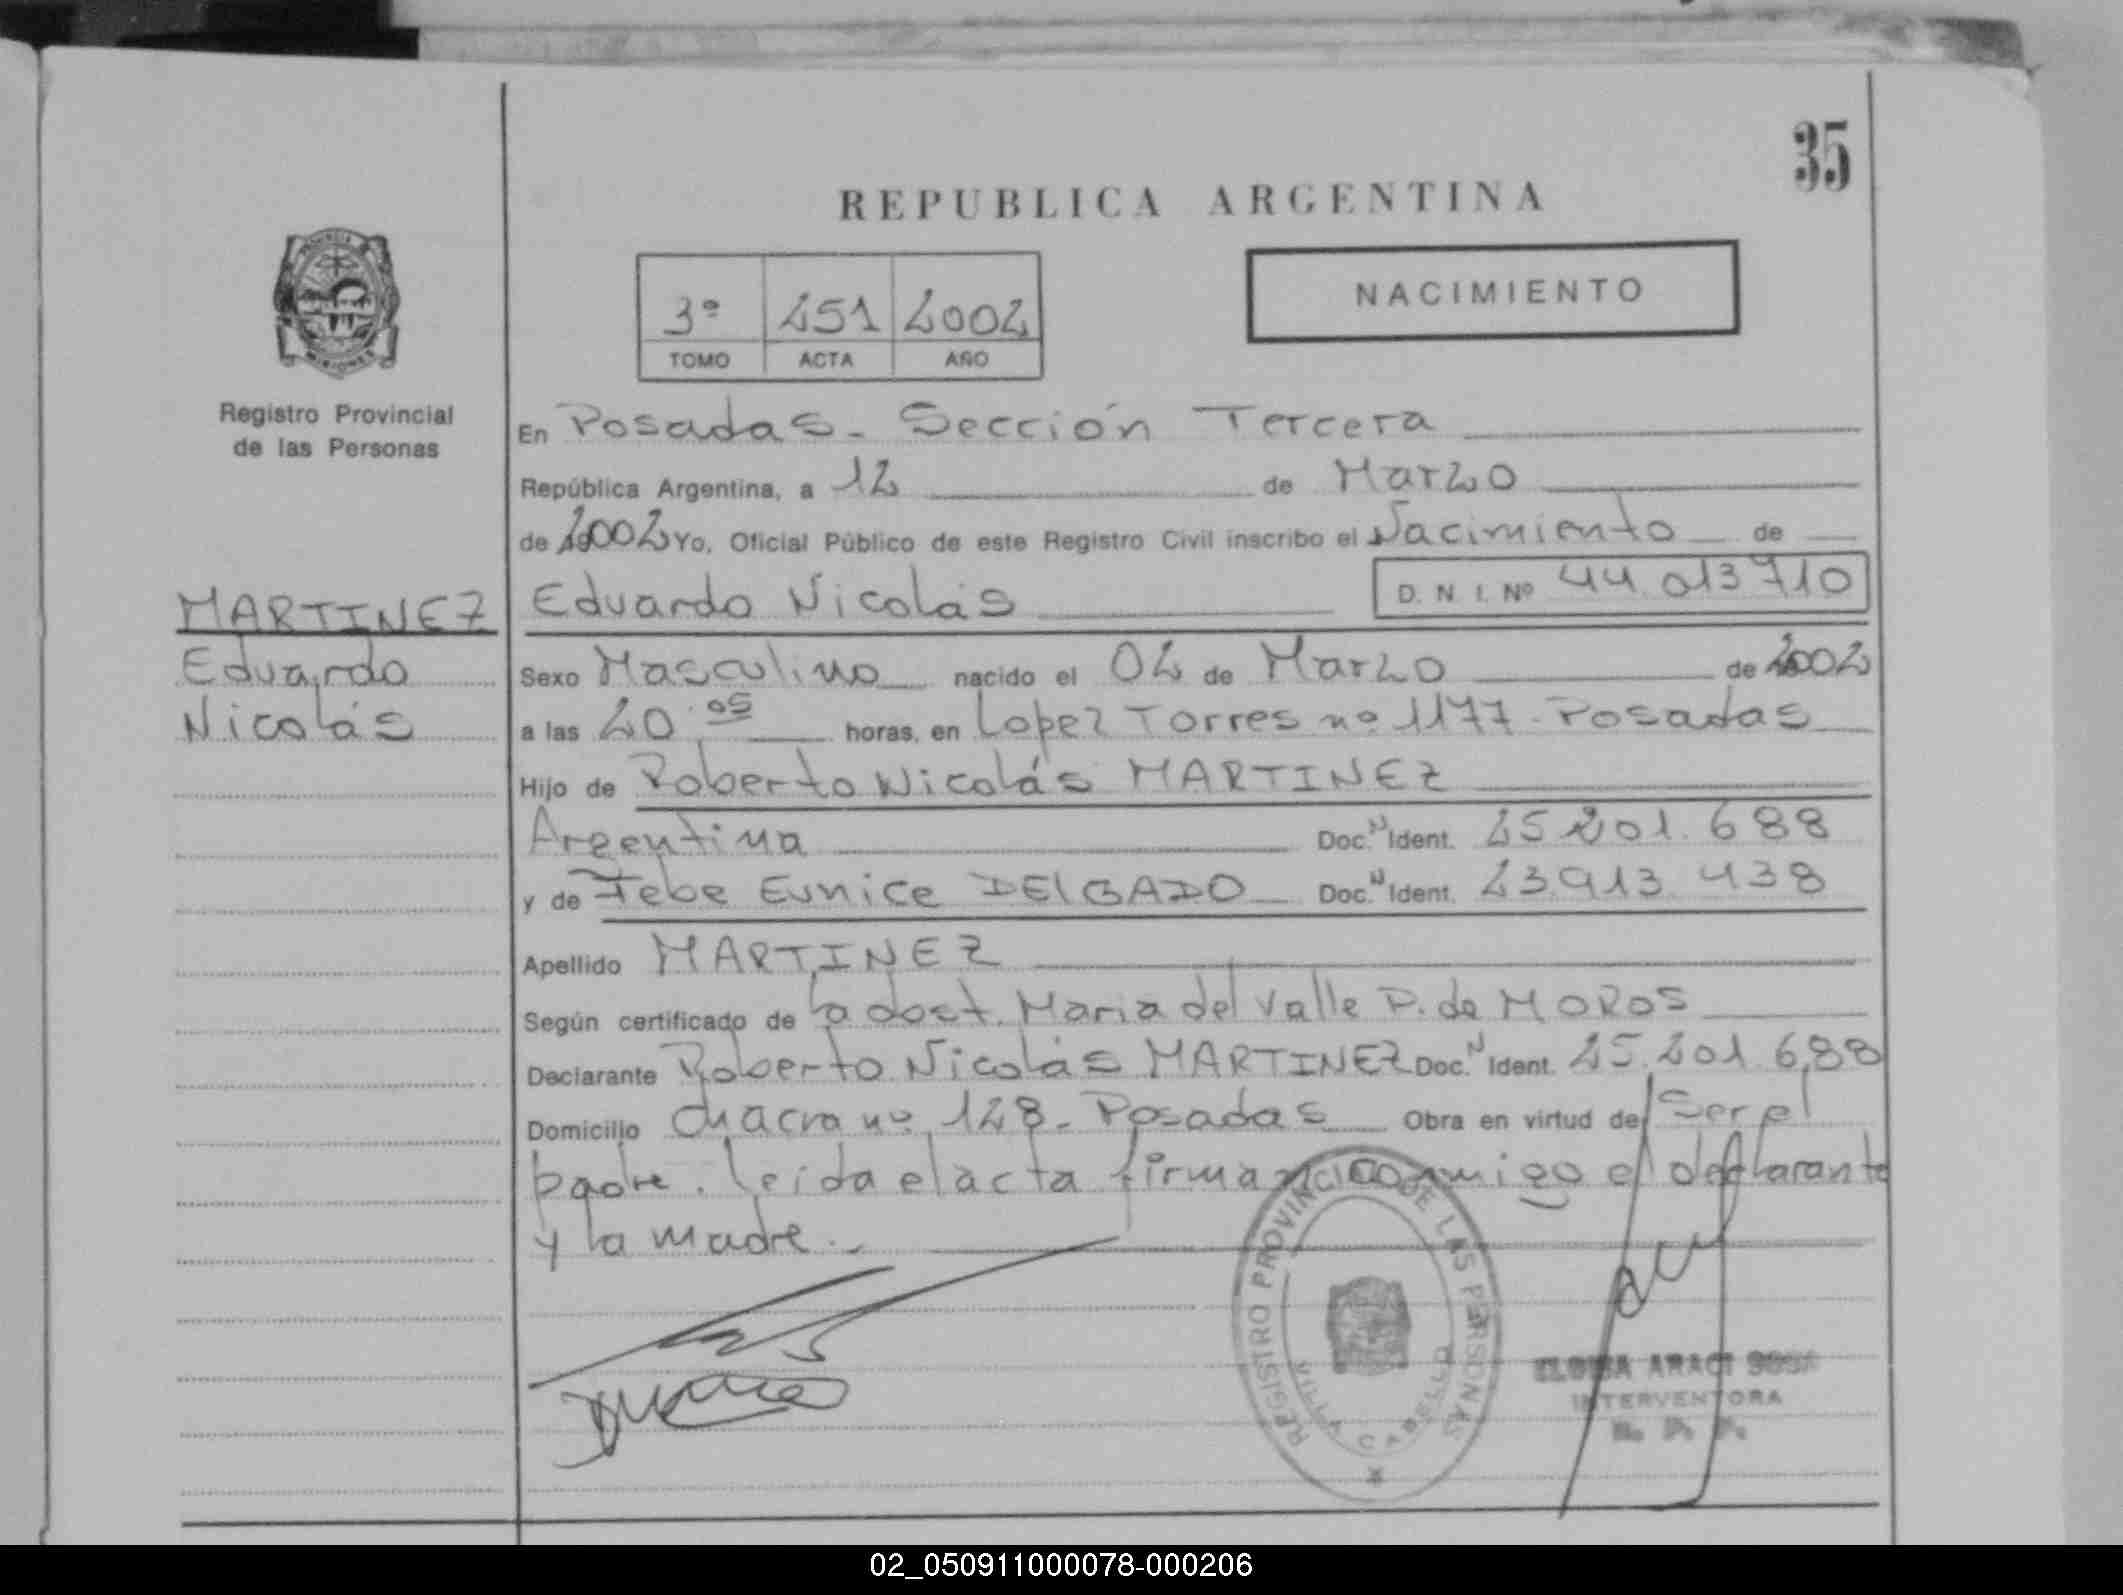 35
REPUBLICA ARGENTINA
3º 251 2002
TOMO ACTA AÑO
NACIMIENTO
Registro Provincial
de las Personas
En Posadas - Sección Tercera
República Argentina, a 12 de Marzo
de 2002 Yo, Oficial Público de este Registro Civil inscribo el Nacimiento de
MARTINEZ Eduardo Nicolás D. N. I. Nº 44.013710
Eduardo Sexo Masculino nacido el 02 de Marzo de 2002
Nicolás a las 20.05 horas, en Lopez Torres nº 1177. Posadas
Hijo de Roberto Nicolás MARTINEZ
Argentina Doc. N Ident. 25.201.688
y de Febe Eunice DElGADO Doc. N Ident. 23.913.438
Apellido MARTINEZ
Según certificado de la doct. Maria del Valle P. de MOROS
Declarante Roberto Nicolás MARTINEZ Doc. N Ident. 25.201.688
Domicilio chacra nº 128 - Posadas Obra en virtud de Ser el
padre. Leída el acta firman conmigo el declarante
y la madre.-
REGISTRO PROVINCIAL DE LAS PERSONAS
VILLA CABELLO
ARACI SOSA
INTERVENTORA
R. P. P.
02_050911000078-000206